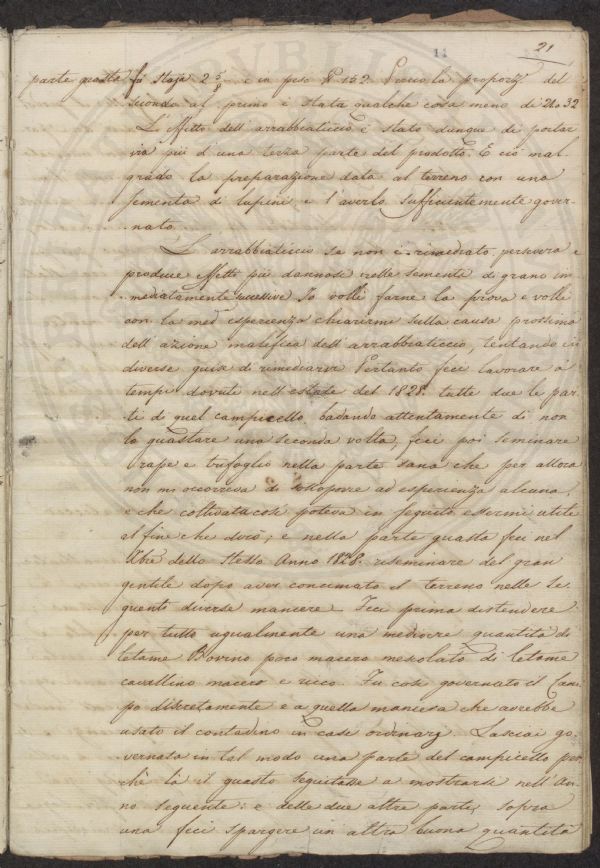 21
parte guasta fù Staja 2 5/8 e in peso ℔ 152. Perciò la proporz.e del
secondo al primo è stata qualche cosa meno di 21 a 32
L'effetto dell'arrabbiaticcio è stato dunque di portar
via più d'una terza parte del prodotto. E ciò mal-
grado la preparazione data al terreno con una
sementa di lupini e l'averlo sufficientemente gover-
-nato.
L'arrabbiaticcio se non è rimediato persevera e
produce effetti più dannosi nelle semente di grano im-
-mediatamente sucessive. Io volli farne la prova e volli
con la med. esperienza chiarirmi sulla causa prossima
dell'azione malefica dell'arrabbiaticcio, tentando in
diverse guise di rimediarvi. Pertanto feci lavorare a
tempi dovuti nell'estade del 1828. tutte due le par-
ti di quel campicello badando attentamente di non
lo guastare una seconda volta, feci poi seminare
rape e trifoglio nella parte sana che per allora
non mi occorreva di sottoporre ad esperienza alcuna,
e che coltivata così poteva in seguito essermi utile
al fine che dirò; e nella parte guasta feci nel
Xbre dello stesso Anno 1828. riseminare del gran
gentile dopo aver concimato il terreno nelle se-
guenti diverse maniere. Feci prima distendere
per tutto ugualmente una mediocre quantità di
letame Bovino poco macero mescolato di letame
cavallino macero e ricco. Fu così governato il Cam-
po discretamente e a quella maniera che avrebbe
usato il contadino in caso ordinarj. Lasciai go-
vernata in tal modo una parte del campicello per-
chè là il guasto seguitasse a mostrarsi nell'An-
no seguente: e delle due altre parti, sopra
una feci spargere un altra buona quantità